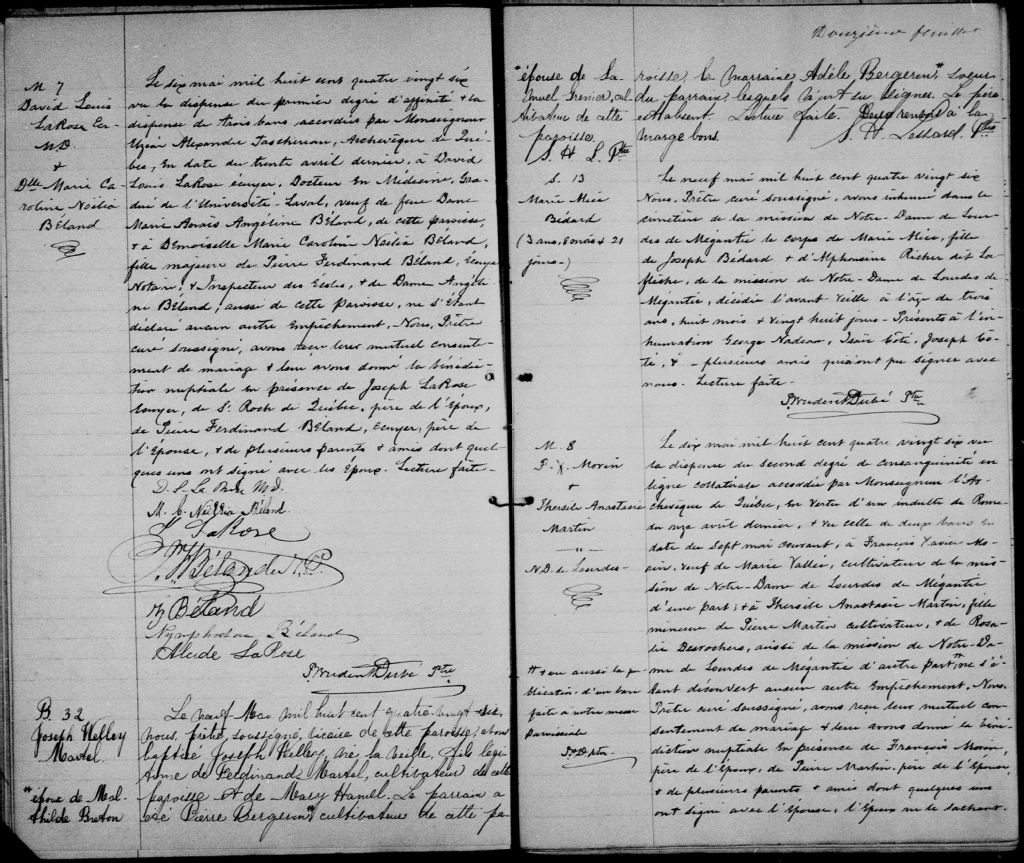 M 7
David Louis
LaRose Ec-
M.D.
+
Dlle Marie Ca-
roline Noëlia
Béland
Le dix mai mil huit cent quatre vingt six
vu la dispense du premier degré d'affinité & la
dispense de trois bans accordées par Monseigneur
Elzéar Alexandre Taschereau, Archevêque de Qué-
bec, en date du trente avril dernier, à David
Louis LaRose écuyer, Docteur en Médecine, Gra-
dué de l'Université-Laval, veuf de feue Dame
Marie Angéline Béland, de cette paroisse,
& à Demoiselle Marie Caroline Noëlia Béland,
fille majeure de Pierre Ferdinand Béland, Ecuyer
Notaire, & Inspecteur des Ecoles, & de Dame Angèli-
ne Béland, aussi de cette paroisse, ne s'étant
déclaré aucun autre empêchement, Nous, Prêtre
curé soussigné, avons reçu leur mutuel consente-
ment de mariage & leur avons donné la bénédic-
tion nuptiale en présence de Joseph LaRose
écuyer, de St Roch de Québec, père de l'époux,
de Pierre Ferdinand Béland, écuyer, père de
l'épouse, & de plusieurs parents & amis dont quel-
ques uns ont signé avec les époux. Lecture faite-
D. L. La Rose M.D.
M. C. Noëlia Béland
J. LaRose
P. F. Béland N.P.
Béland
Béland
Alcide LaRose
Prudent Dubé Ptre
B. 32
Joseph Kelley
Martel
"épouse de Mal-
thilde Breton
Le neuf Mai mil huit cent quatre-vingt six,
nous, prêtre, soussigné, vicaire de cette paroisse, avons
baptisé Joseph Kelley, né la veille, fils légi-
time de Ferdinand Martel, cultivateur de cette
paroisse et de Mary Hamel. Le parrain a
été Pierre Bergeron" cultivateur de cette pa-
Douzième feuillet
"épouse de Sa-
muel Grenier, cul-
tivateur de cette
paroisse.
S. H. L. Ptre
roisse, la marraine Adèle Bergeron", soeur
du parrain lesquels n'ont su signer. Le père
est absent. Lecture faite. Deux renvois à la
marge bons.
S. H. Lessard, Ptre
S. 13
Marie Alice
Bédard
(3 ans, 8 mois & 21
jours-)
Le neuf mai mil huit cent quatre vingt six
Nous, Prêtre curé soussigné, avons inhumé dans le
cimetière de la mission de Notre-Dame de Lour-
des de Mégantic le corps de Marie Alice, fille
de Joseph Bédard & d'Alphonsine Richer dit La-
flèche, de la mission de Notre-Dame de Lourdes de
Mégantic, décédée l'avant-veille à l'âge de trois
ans, huit mois & vingt huit jours- Présents à l'in-
humation George Nadeau, Isaïe Côté, Joseph Cô-
té, & - plusieurs amis qui n'ont pu signer avec
nous. Lecture faite-
Prudent Dubé Ptre
M. 8
F. X. Morin
+
Thersile Anastasie
Martin
-"-
N.D. de Lourdes-
"& vu aussi la pu-
blication d'un ban
faite à notre messe
Paroissiale
Le dix mai mil huit cent quatre vingt six vu
la dispense du second degré de consanguinité en
ligne collatérale accordée par Monseigneur l'Ar-
chevêque de Québec, en vertu d'un indulte de Rome
du onze avril dernier, & vu celle de deux bans en
date du sept mai courant, à François Xavier Mo-
rin, veuf de Marie Vallée, cultivateur de la mis-
sion de Notre-Dame de Lourdes de Mégantic
d'une part; & à Thersile Anastasie Martin, fille
mineure de Pierre Martin cultivateur, & de Rosa-
lie Desrochers, aussi de la mission de Notre-Da-
me de Lourdes de Mégantic d'autre part," ne s'é-
tant découvert aucun autre empêchement, Nous
Prêtre curé soussigné, avons reçu leur mutuel con-
sentement de mariage & leur avons donné la béné-
diction nuptiale en présence de François Morin,
père de l'époux, de Pierre Martin, père de l'épouse
& de plusieurs parents & amis dont quelques uns
ont signé avec l'épouse, l'époux ne le sachant.